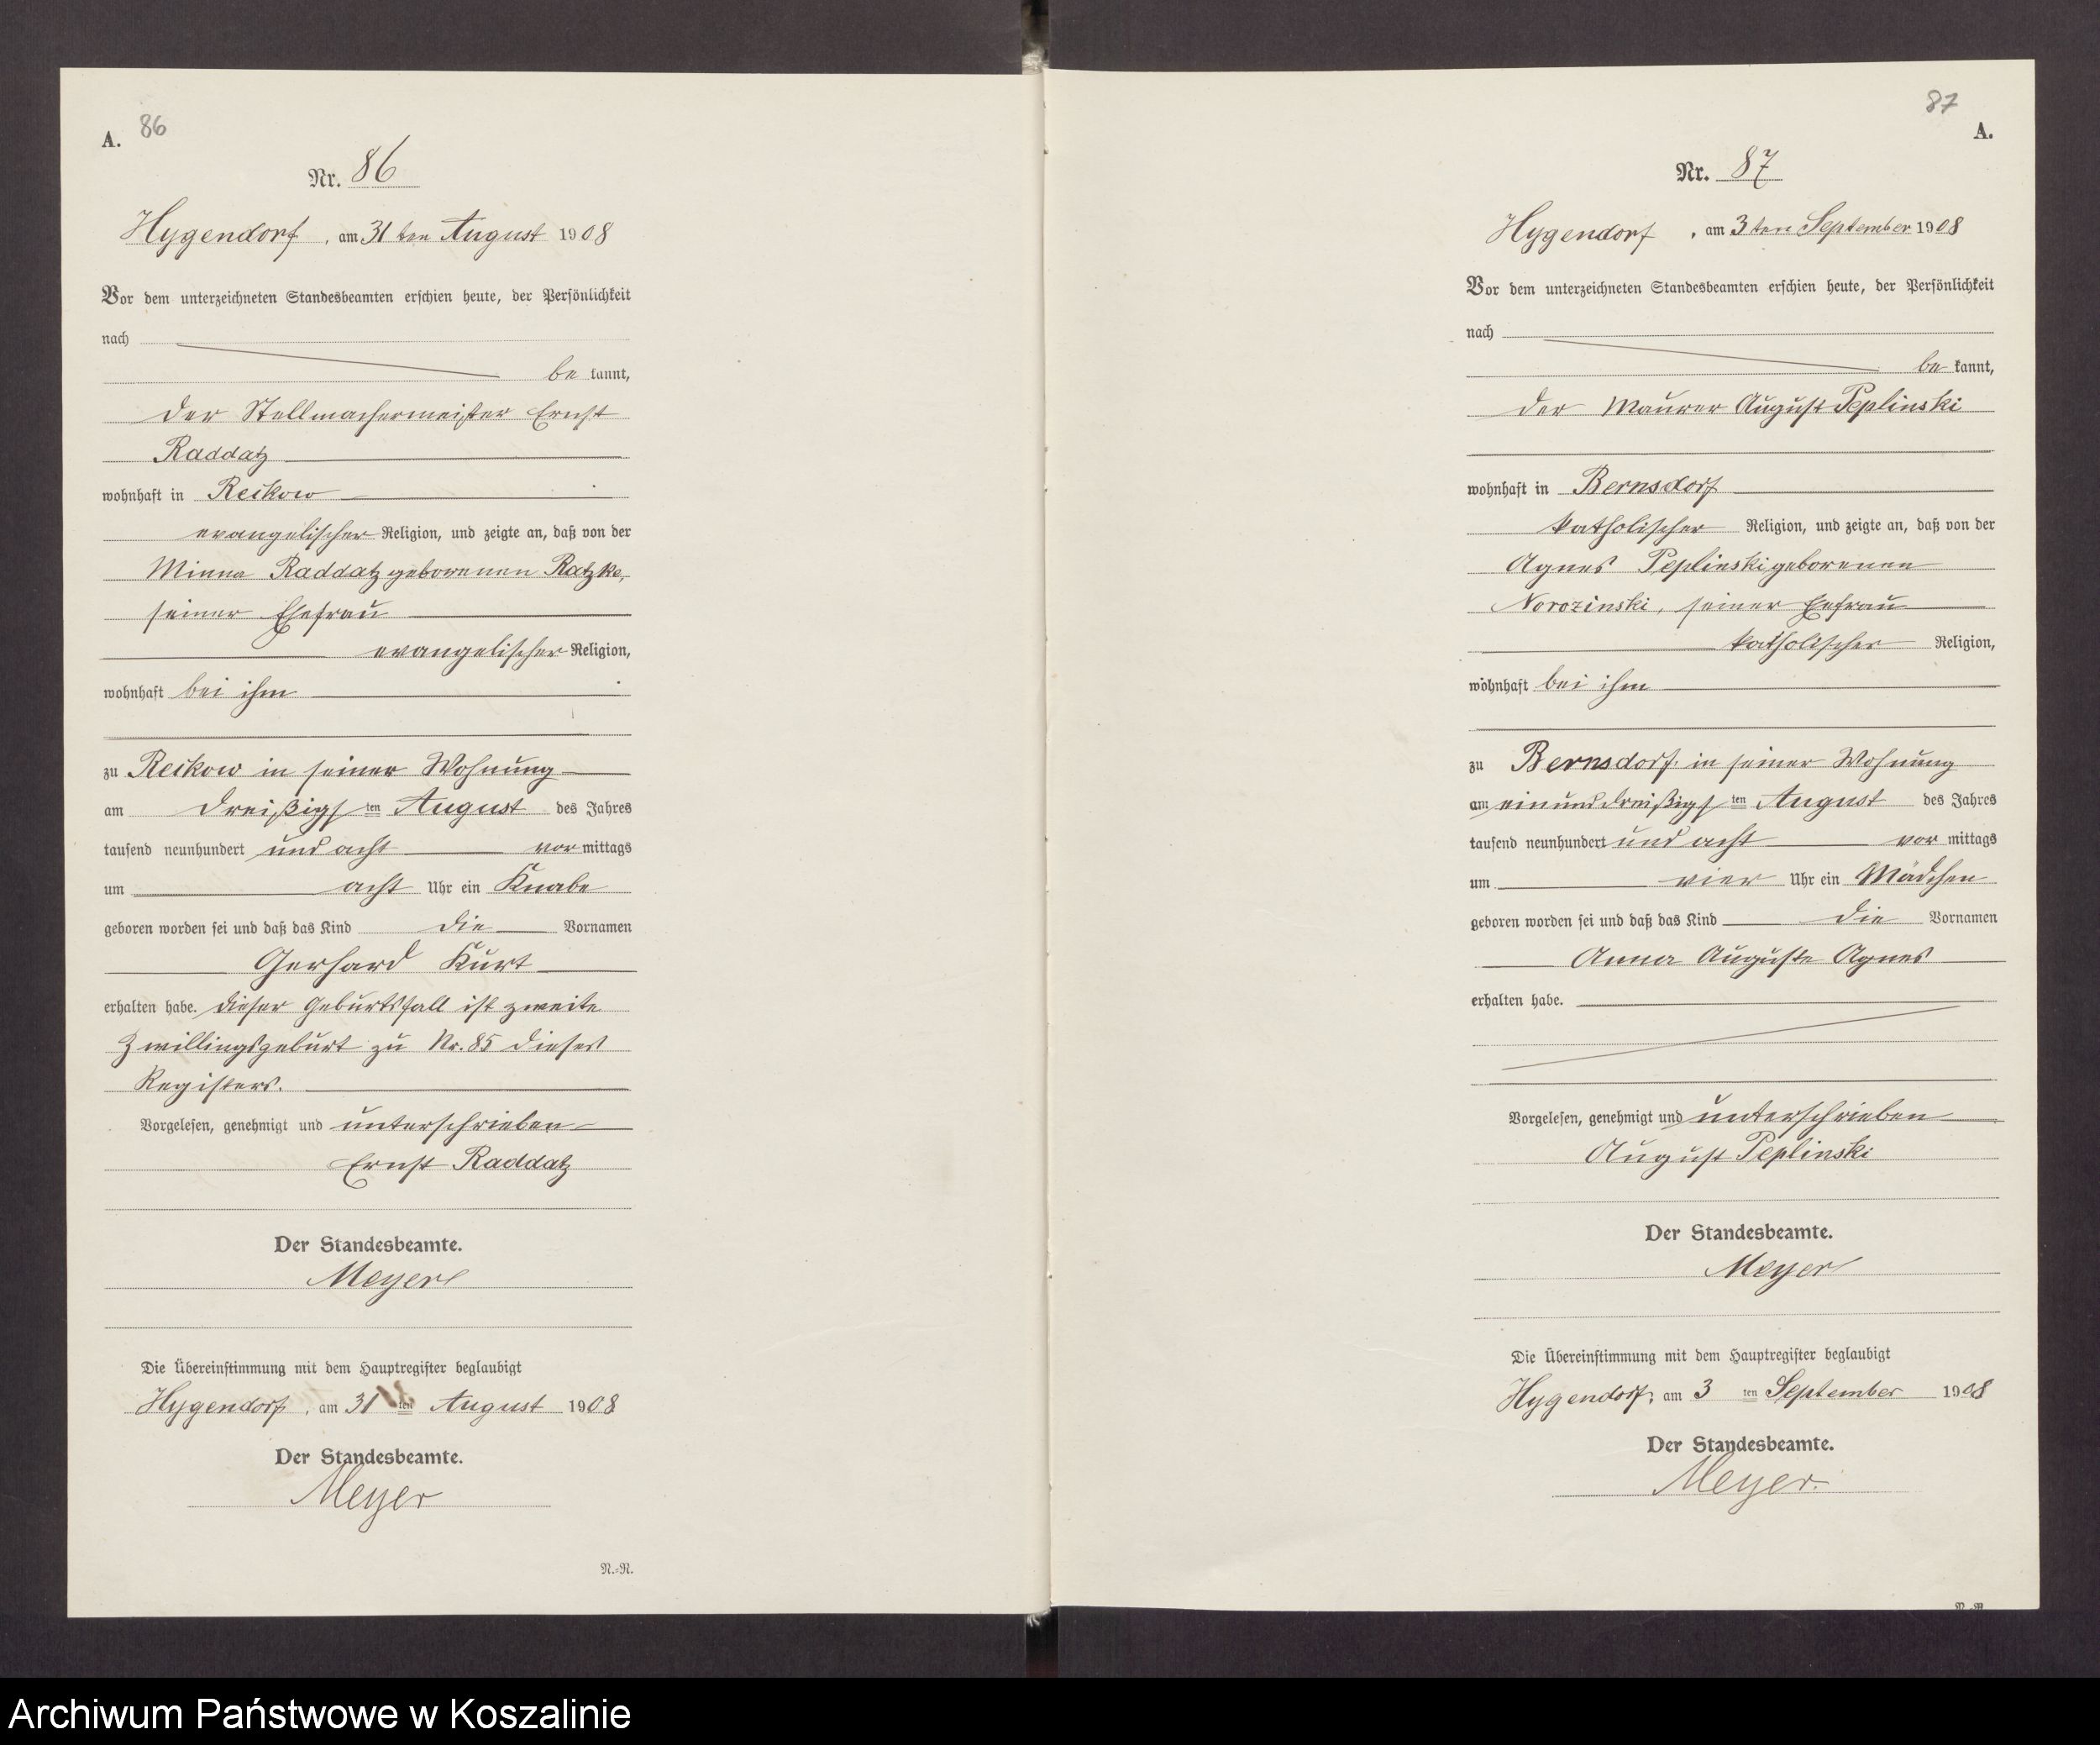 A. 86
Nr. 86
Hygendorf, am 31ten August 1908
Vor dem unterzeichneten Standesbeamten erschien heute, der Persönlichkeit
nach
be kannt,
der Stellmachermeister Ernst
Raddatz
wohnhaft in Reikow
evangelischer Religion, und zeigte an, daß von der
Minna Raddatz geborenen Ratzke,
seiner Ehefrau
evangelischer Religion,
wohnhaft bei ihm
zu Reikow in seiner Wohnung
am dreißigsten August des Jahres
tausend neunhundert und acht vor mittags
um acht Uhr ein Knabe
geboren worden sei und daß das Kind die Vornamen
Gerhard Kurt
erhalten habe. Dieser Geburtsfall ist zweite
Zwillingsgeburt zu Nr. 85 dieses
Registers.
Vorgelesen, genehmigt und unterschrieben
Ernst Raddatz
Der Standesbeamte.
Meyer
Die Übereinstimmung mit dem Hauptregister beglaubigt
Hygendorf, am 31 ten August 1908
Der Standesbeamte.
Meyer
N.=N.
87
A.
Nr. 87
Hygendorf, am 3ten September 1908
Vor dem unterzeichneten Standesbeamten erschien heute, der Persönlichkeit
nach
be kannt,
der Maurer August Peplinski
wohnhaft in Bernsdorf
katholischer Religion, und zeigte an, daß von der
Agnes Peplinski geborenen
Norozinski, seiner Ehefrau
katholischer Religion,
wohnhaft bei ihm
zu Bernsdorf in seiner Wohnung
am einunddreißigsten August des Jahres
tausend neunhundert und acht vor mittags
um vier Uhr ein Mädchen
geboren worden sei und daß das Kind die Vornamen
Anna Auguste Agnes
erhalten habe.
Vorgelesen, genehmigt und unterschrieben
August Peplinski
Der Standesbeamte.
Meyer
Die Übereinstimmung mit dem Hauptregister beglaubigt
Hygendorf, am 3 ten September 1908
Der Standesbeamte.
Meyer.
Archiwum Państwowe w Koszalinie